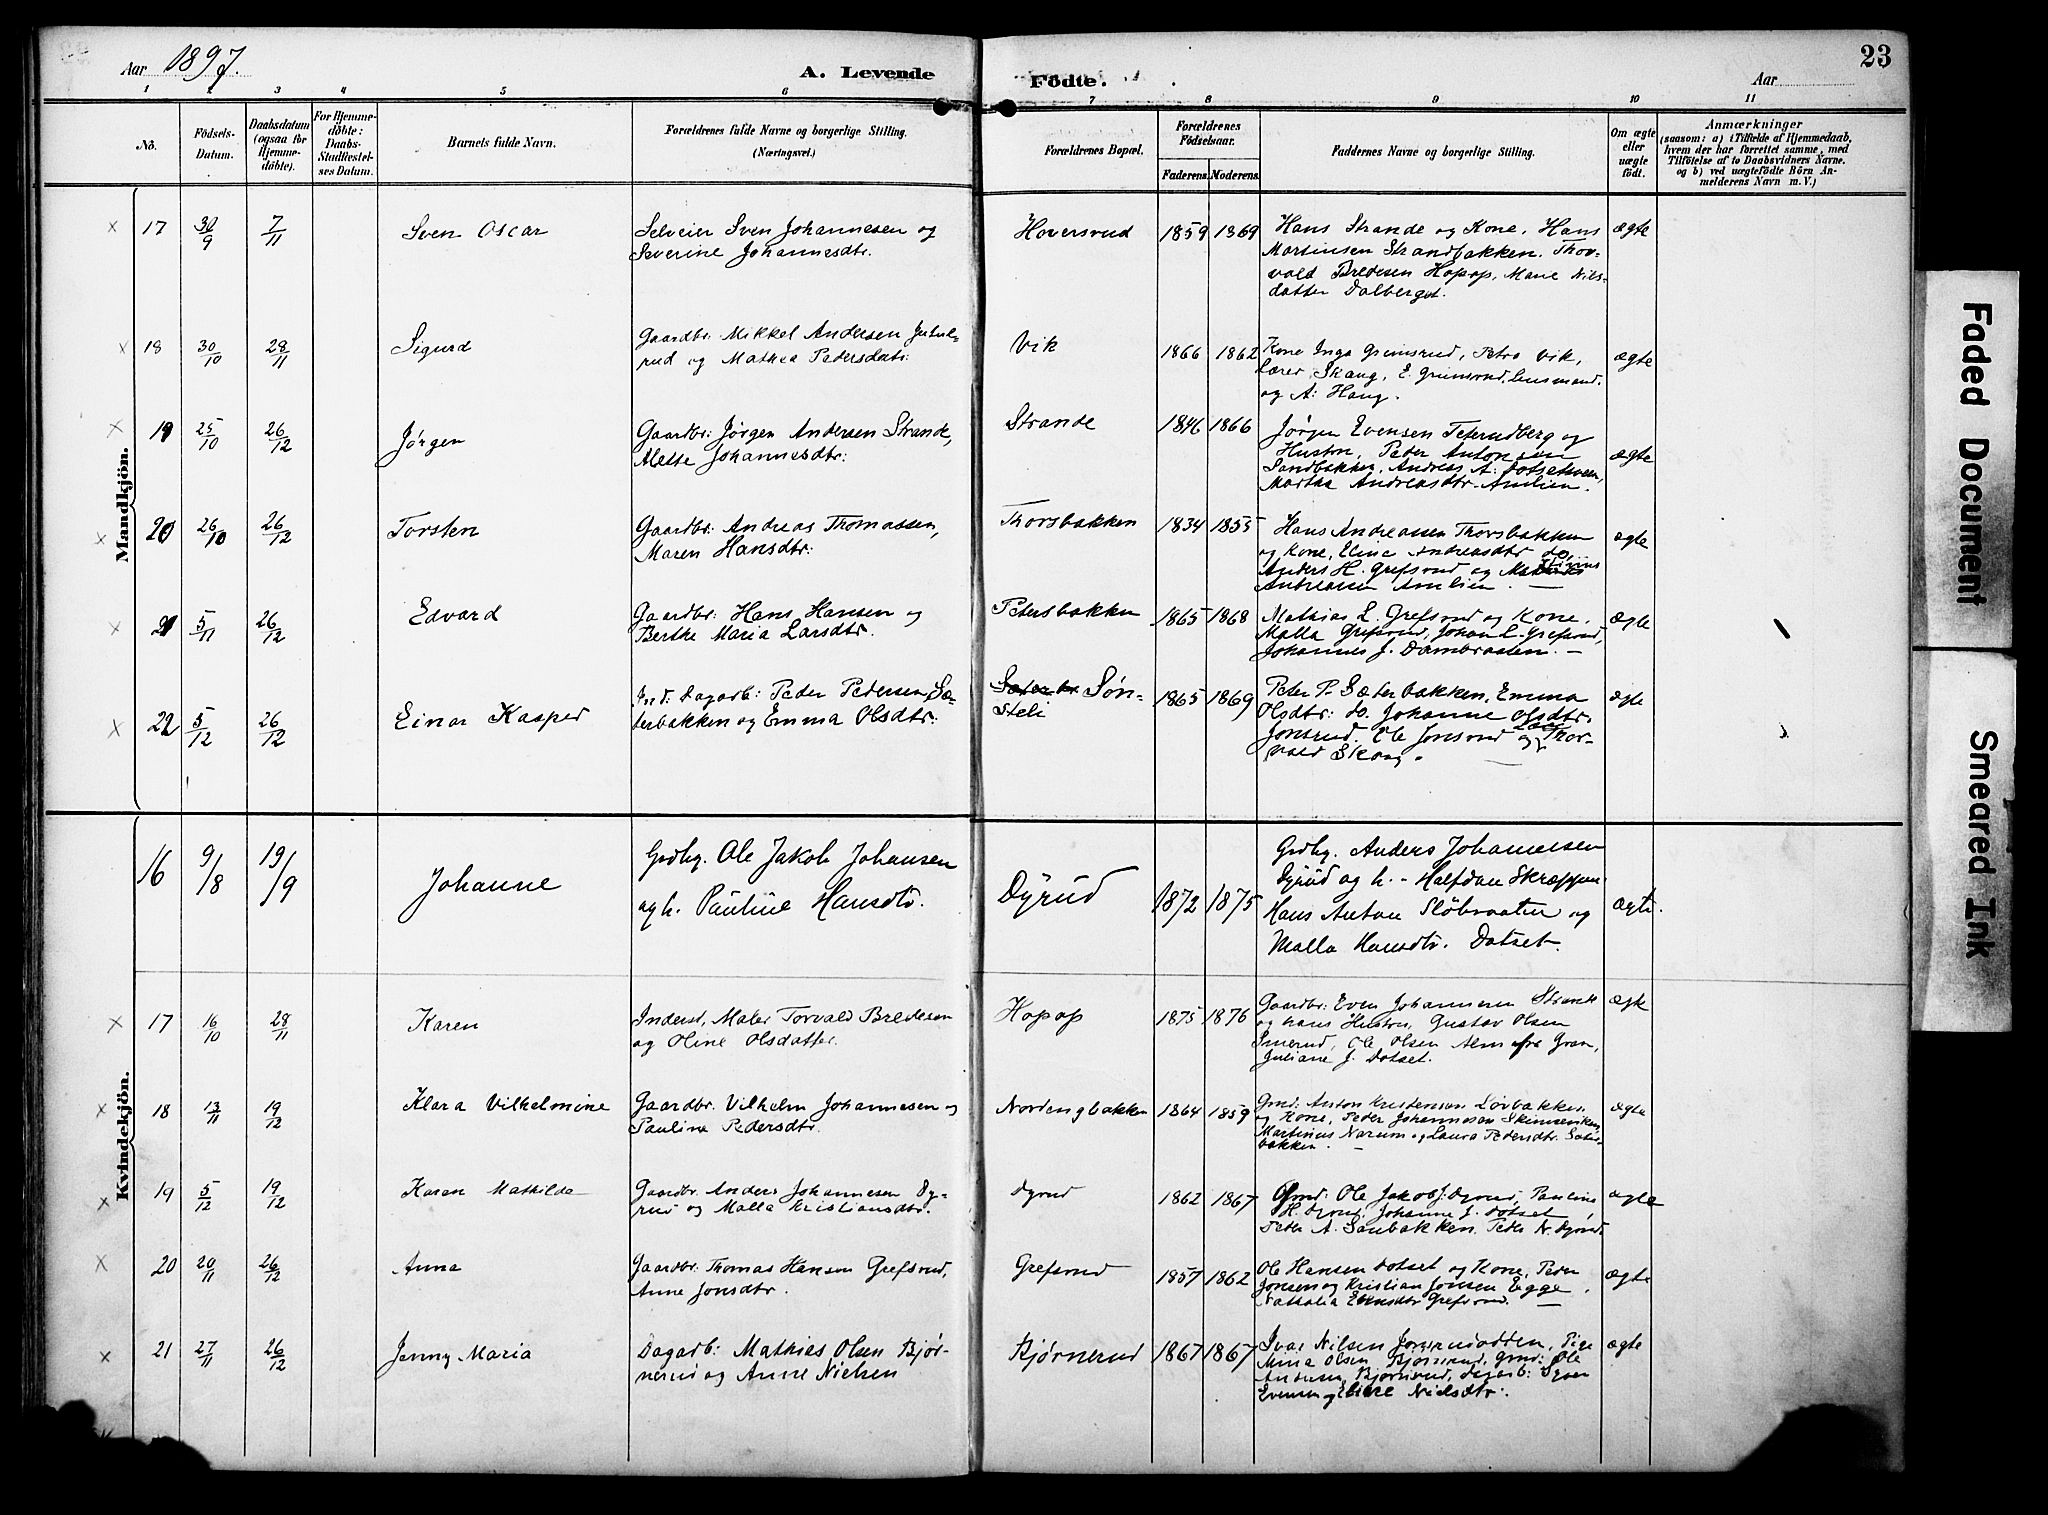 Aar 1897.
A. Levende Födte.
Aar
23
1 2 3 4 5 6 7 8 9 10 11
No.
Födsels-Datum.
Daabsdatum (ogsaa for Hjemme-döbte).
For Hjemme-döbte: Daabs-Stadfæstel-ses Datum.
Barnets fulde Navn.
Forældrenes fulde Navne og borgerlige Stilling. (Næringsvei.)
Forældrenes Bopæl.
Forældrenes Födselsaar.
Faderens. Moderens.
Faddernes Navne og borgerlige Stilling.
Om ægte eller uægte födt.
Anmærkninger
(saasom: a) i Tilfælde af Hjemmedaab, hvem der har forrettet samme, med Tilföielse af to Daabsvidners Navne. og b) ved uægtefödte Börn Anmelderens Navn m. V.)
Mandkjön.
17 30/9 7/11 Sven Oscar
Selveier Sven Johannesen og
Severine Johannesdtr.
Hoversrud 1859 1869
Hans Strande og Kone, Hans
Martinsen Strandbakken. Thor-
vald Bredesen Hopop, Marie Nils-
datter Dalberget.
ægte
18 30/10 28/11 Sigurd
Gaardbr: Mikkel Andersen Jutul-
rud og Mathea Pedersdatr:
Vik 1866 1862
Kone Inga Grimsrud, Petra Vik,
Lærer Skaug, E. Grimsrud,
og A: Haug.
ægte
19 25/10 26/12 Jørgen
Gaardbr: Jørgen Andersen Strande,
Mette Johannesdtr:
Strande 1846 1866
Jørgen Evensen Teterudberg og
Hustru, Peder Antonsen
Sandbakken, Andreas A:
Martha Andreasdtr. Amlien.
ægte
20 26/10 26/12 Torsten
Gaardbr: Andreas Thomassen,
Maren Hansdtr:
Thorsbakken 1834 1855
Hans Andreassen Thorsbakken
og Kone, Eline Andreasdtr do,
Anders H. Grefsrud og
Andreassen Amlien.
ægte
21 5/11 26/12 Edvard
Gaardbr: Hans Hansen og
Berthe Maria Larsdtr.
Petersbakken 1865 1868
Mathias L. Grefsrud og Kone,
Malla Grefsrud, Johan L. Grefsrud,
Johannes J. Dambraaten. —
ægte
22 5/12 26/12 Einar Kasper
Ind: Dagarb: Peder Pedersen Sæ-
terbakken og Emma Olsdtr:
Søn-
steli
1865 1869
Peter P. Sæterbakken, Emma
Olsdtr: do. Johanne Olsdtr.
Jonsrud. Ole Jonsrud og Thor-
vald Skaug.
ægte
Kvindekjön.
16 9/8 19/9 Johanne
Grdbg. Ole Jakob Johansen
og h. Pauline Hansdtr.
Dyrud 1872 1875
Grdbg. Anders Johannesen
Dyrud og h. – Halfdan Skrappen
Hans Anton Slöbraaten og
Malla Hansdtr. Dotset.
ægte.
17 16/10 28/11 Karen
Inderst, Maler Torvald Bredesen
og Oline Olsdatter.
Hopop 1875 1876
Gaardbr: Even Johannesen Strande
og hans Hustru, Gustav Olsen
Smerud, Ole Olsen Alm fra Gran,
Juliane J. Dotset.
ægte
18 13/11 19/12 Klara Vilhelmine
Gaardbr. Vilhelm Johannesen og
Pauline Pedersdtr.
Nordengbakken 1864 1859
Grnd: Anton Kristensen Løvbakken
og Kone, Peder Johannesen Skinneviken,
Martinus Narum og Laura Pedersdtr. Sæter-
bakken. —
ægte
19 5/12 19/12 Karen Mathilde
Gaardbr. Anders Johannesen Dy-
rud og Malla Kristiansdtr.
Dyrud 1862 1867
Grnd: Ole Jakob J: Dyrud, Pauline
H. Dyrud, Johanne J. Dotset
Peder A. Sanbakken. Peder N. Dyrud.
ægte
20 20/11 26/12 Anna
Gaardbr: Thomas Hansen Grefsrud,
Anne Jonsdtr.
Grefsrud 1857 1862
Ole Hansen Dotset og Kone, Peder
Jonsen og Kristian Jonsen Egge,
Nathalia Grefsrud. —
ægte
21 27/11 26/12 Jenny Maria
Dagarb: Mathias Olsen Bjør-
nerud og Anne Nielsen
Bjørnerud 1867 1867
Ivar Nilsen Jonsrudodden, Pige
Mina Olsen Bjørnerud, Grnd: Ole
Andersen Bjørnerud, Dagarb:
Evensen og Eline Nielsdtr.
ægte
Faded Document
Smeared Ink